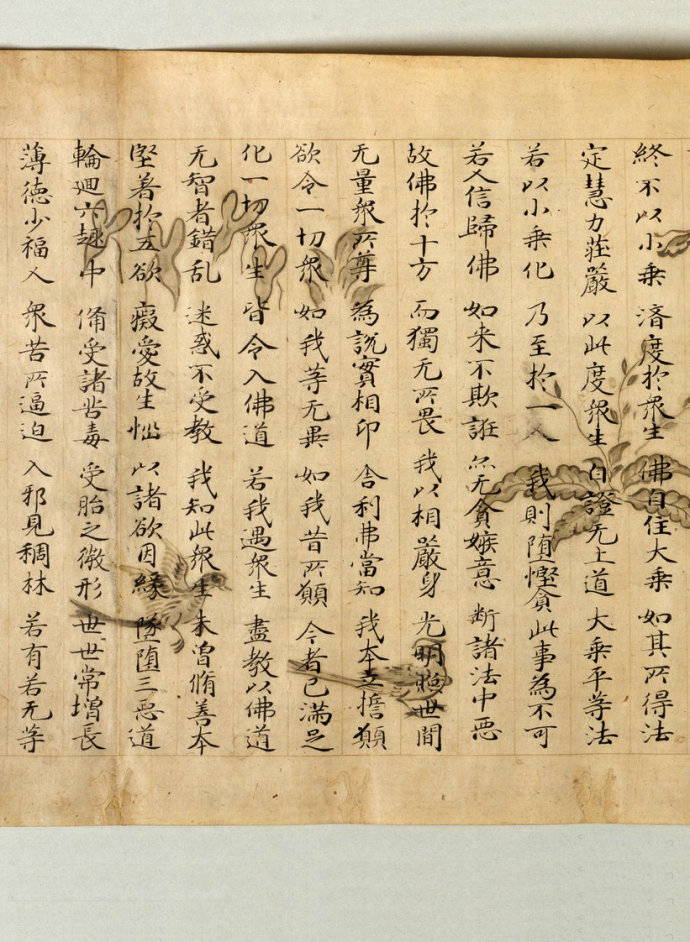 終不以小乗 済度於衆生 佛自住大乗 如其所得法
定慧力荘嚴 以此度衆生 自證无上道 大乗平等法
若以小乗化 乃至於一人 我則堕慳貪 此事為不可
若人信歸佛 如来不欺誑 亦无貪嫉意 断諸法中惡
故佛於十方 而獨无所畏 我以相嚴身 光明照世間
无量衆所尊 為說實相印 舎利弗當知 我本立擔願
欲令一切衆 如我等无異 如我昔所願 今者已満足
化一切衆生 皆令入佛道 若我遇衆生 盡教以佛道
无智者錯乱 迷惑不受教 我知此衆生 未曽脩善本
堅著於五欲 癡愛故生惱 以諸欲因縁 墜堕三惡道
輪廻六趣中 俻受諸苦毒 受胎之微形 世世常増長
薄徳少福人 衆苦所逼迫 入邪見稠林 若有若无等